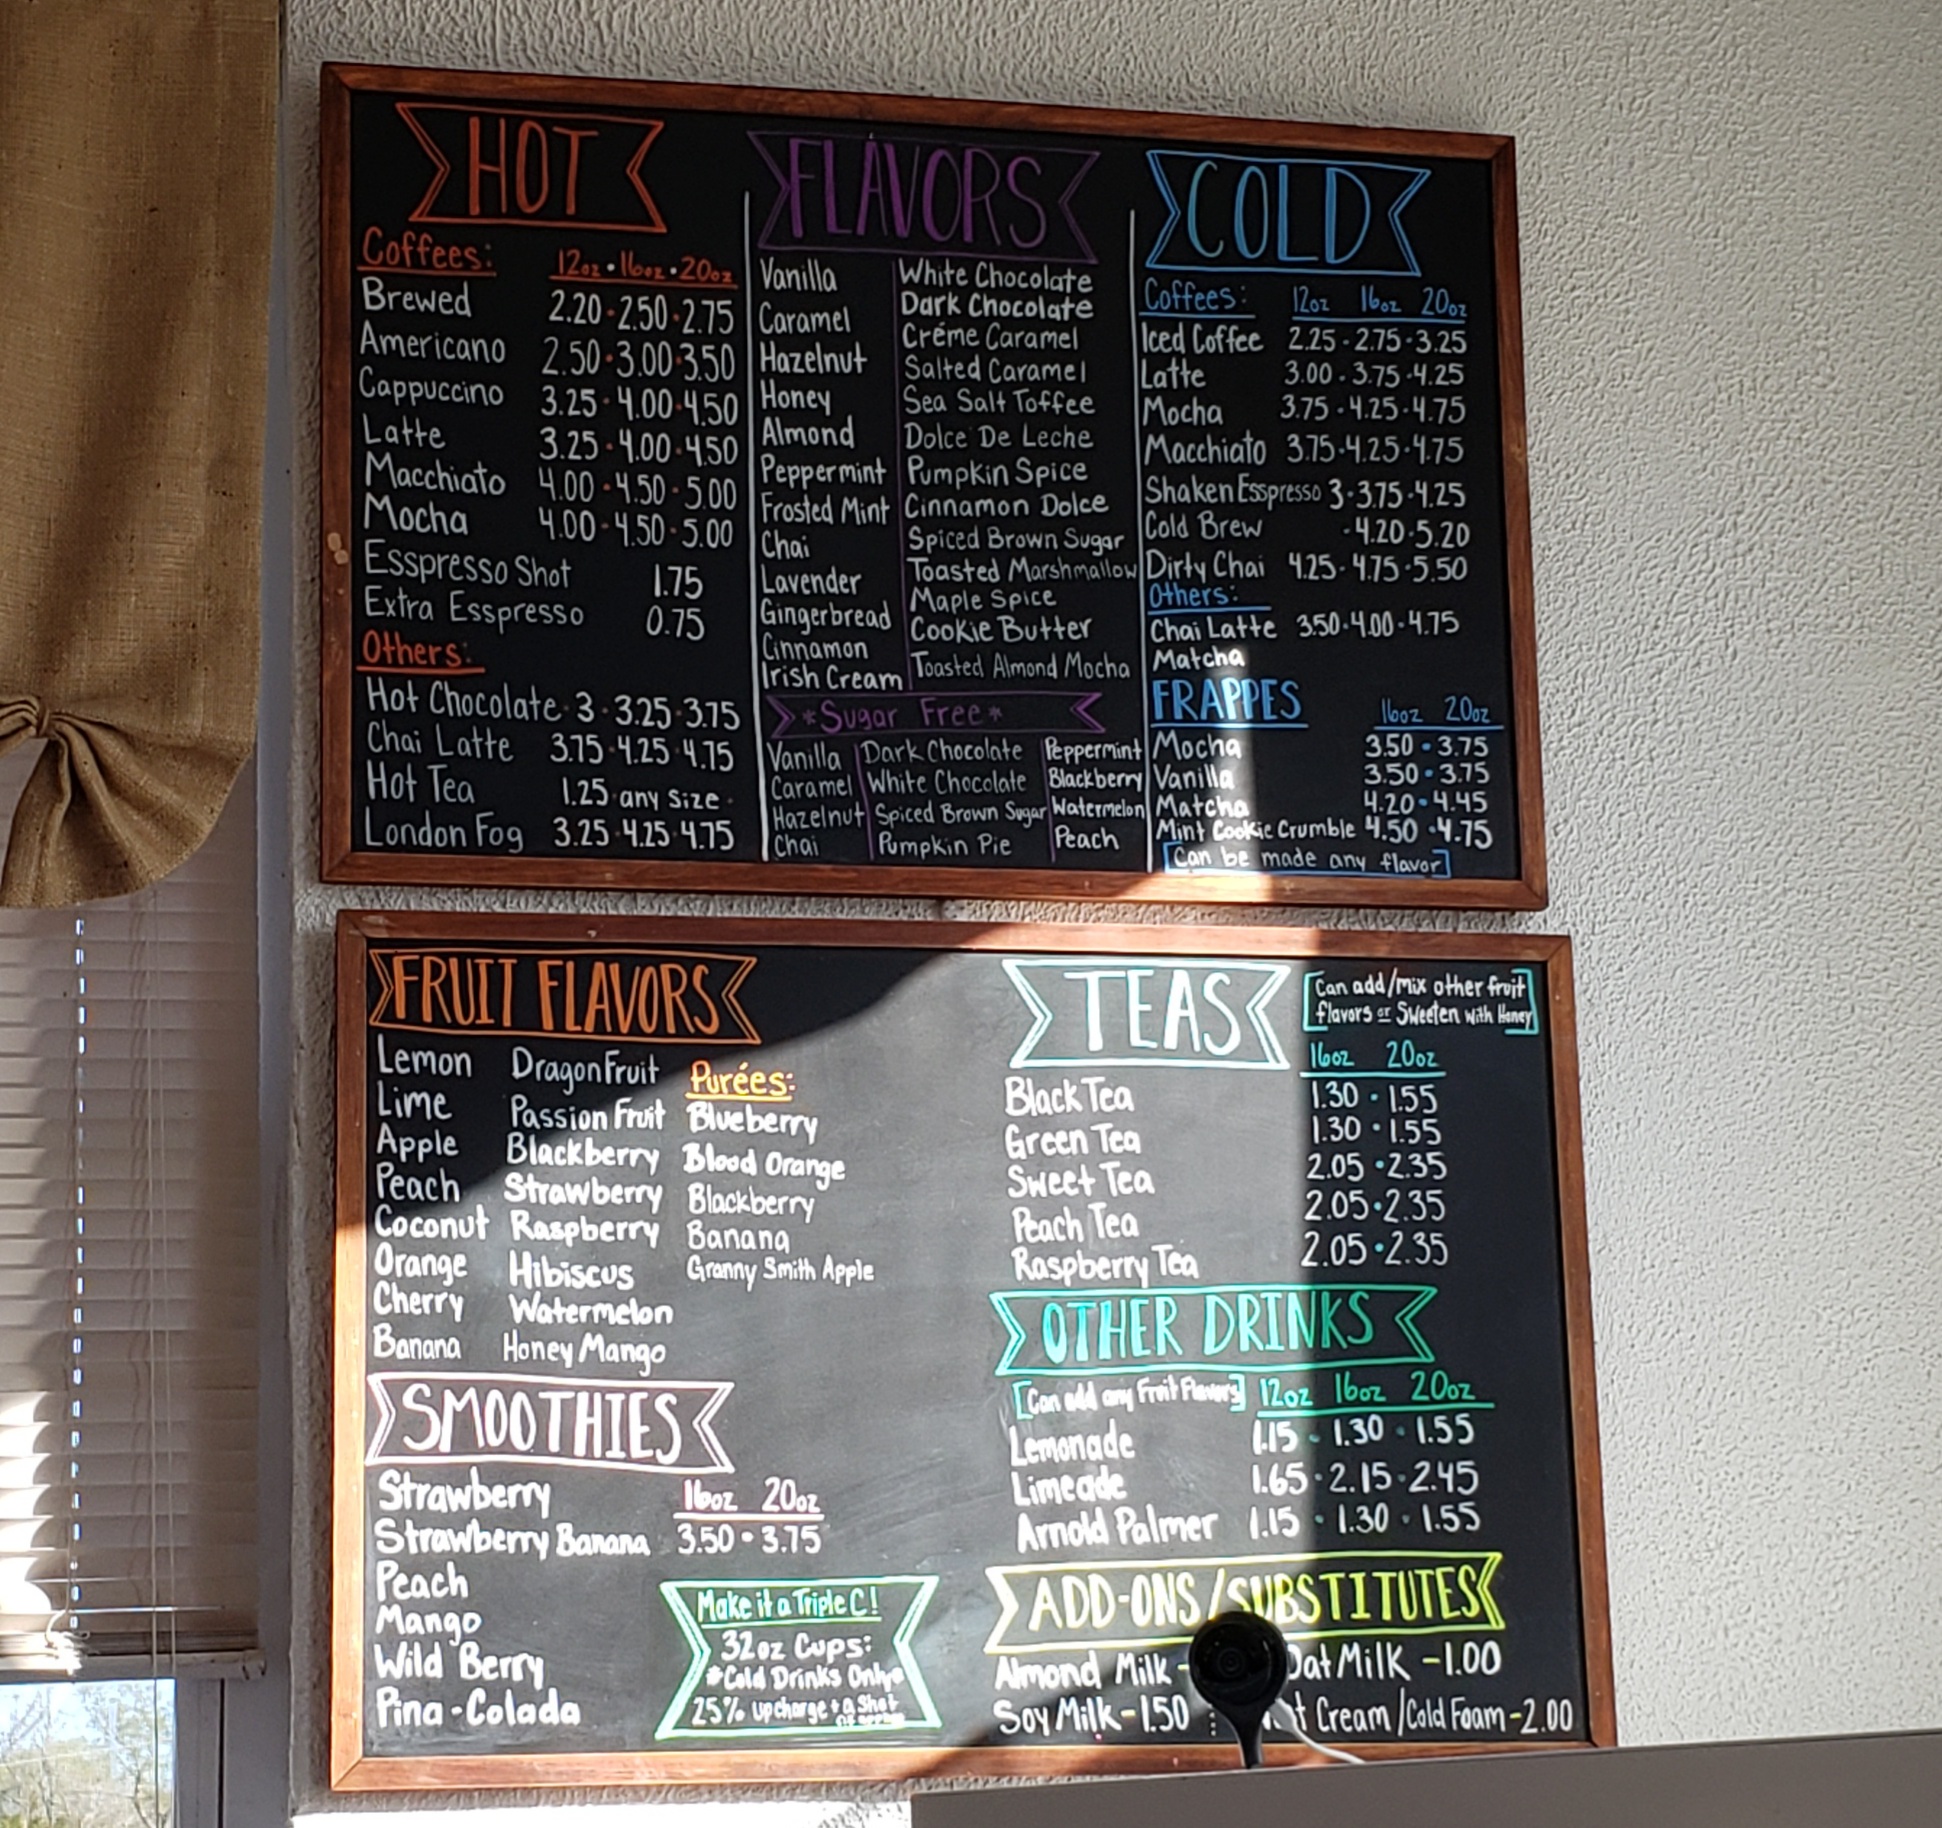 HOT
Coffees: 12oz • 16oz • 20oz
Brewed 2.20 • 2.50 • 2.75
Americano 2.50 • 3.00 • 3.50
Cappuccino 3.25 • 4.00 • 4.50
Latte 3.25 • 4.00 • 4.50
Macchiato 4.00 • 4.50 • 5.00
Mocha 4.00 • 4.50 • 5.00
Esspresso Shot 1.75
Extra Esspresso 0.75
Others:
Hot Chocolate • 3 • 3.25 • 3.75
Chai Latte 3.75 • 4.25 • 4.75
Hot Tea 1.25 any size
London Fog 3.25 • 4.25 • 4.75
FLAVORS
Vanilla
Caramel
Hazelnut
Honey
Almond
Peppermint
Frosted Mint
Chai
Lavender
Gingerbread
Cinnamon
Irish Cream
White Chocolate
Dark Chocolate
Créme Caramel
Salted Caramel
Sea Salt Toffee
Dolce De Leche
Pumpkin Spice
Cinnamon Dolce
Spiced Brown Sugar
Toasted Marshmallow
Maple Spice
Cookie Butter
Toasted Almond Mocha
*Sugar Free*
Vanilla
Caramel
Hazelnut
Chai
Dark Chocolate
White Chocolate
Spiced Brown Sugar
Pumpkin Pie
Peppermint
Blackberry
Watermelon
Peach
COLD
Coffees: 12oz 16oz 20oz
Iced Coffee 2.25 - 2.75 • 3.25
Latte 3.00 - 3.75 • 4.25
Mocha 3.75 • 4.25 • 4.75
Macchiato 3.75 • 4.25 • 4.75
Shaken Esspresso 3 • 3.75 • 4.25
Cold Brew - 4.20 • 5.20
Dirty Chai 4.25 • 4.75 • 5.50
Others:
Chai Latte 3.50 • 4.00 • 4.75
Matcha
FRAPPES 16oz 20oz
Mocha 3.50 • 3.75
Vanilla 3.50 • 3.75
Matcha 4.20 • 4.45
Mint Cookie Crumble 4.50 • 4.75
[Can be made any flavor]
FRUIT FLAVORS
Lemon
Lime
Apple
Peach
Coconut
Orange
Cherry
Banana
DragonFruit
Passion Fruit
Blackberry
Strawberry
Raspberry
Hibiscus
Watermelon
Honey Mango
Purées:
Blueberry
Blood Orange
Blackberry
Banana
Granny Smith Apple
SMOOTHIES
16oz 20oz
3.50 • 3.75
Strawberry
Strawberry Banana
Peach
Mango
Wild Berry
Pina-Colada
Make it a Triple C!
32oz Cups:
*Cold Drinks Only*
25% upcharge + a Shot
TEAS
[Can add/mix other fruit
flavors or Sweeten with Honey]
16oz 20oz
Black Tea 1.30 • 1.55
Green Tea 1.30 • 1.55
Sweet Tea 2.05 • 2.35
Peach Tea 2.05 • 2.35
Raspberry Tea 2.05 • 2.35
OTHER DRINKS
[Can add any Fruit Flavors] 12oz 16oz 20oz
Lemonade 1.15 • 1.30 • 1.55
Limeade 1.65 • 2.15 • 2.45
Arnold Palmer 1.15 • 1.30 • 1.55
ADD-ONS/SUBSTITUTES
Almond Milk - Oat Milk -1.00
Soy Milk-1.50 Cream/Cold Foam-2.00